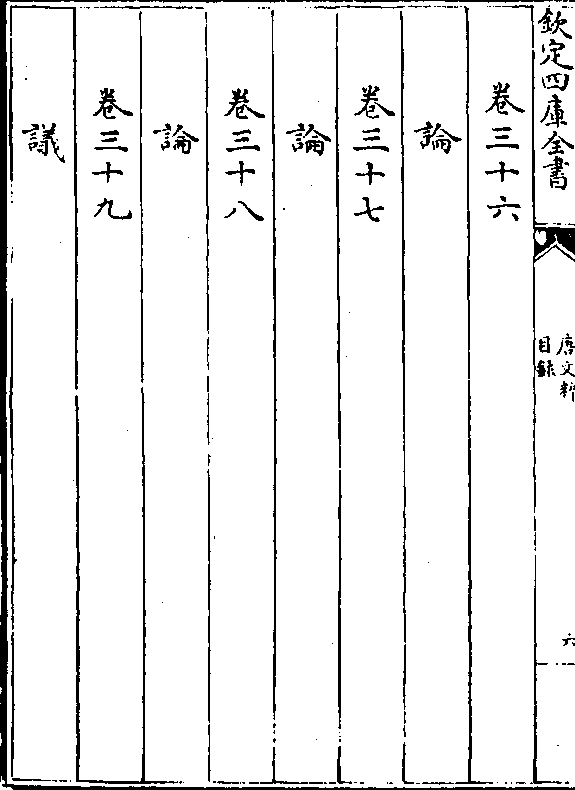 欽定四庫全書
唐文粹
目録
六
卷三十六
論
卷三十七
論
卷三十八
論
卷三十九
議